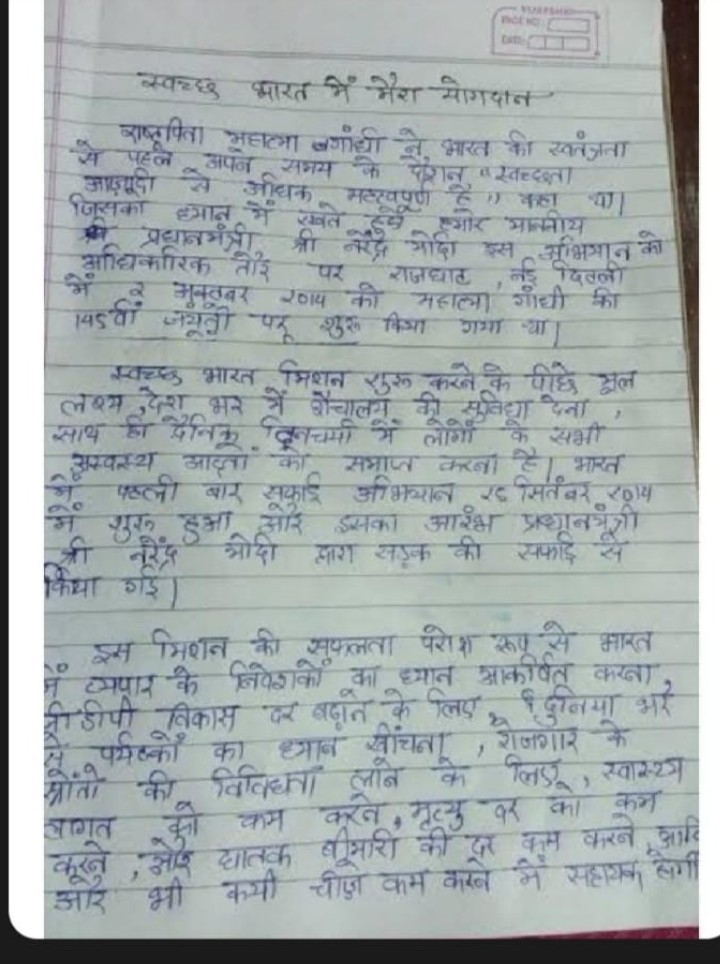 PAGE NO:
DATE:
स्वच्छ भारत में मेरा योगदान
राष्ट्रपिता महात्मा गांधी ने भारत की स्वतंत्रता
से पहले अपने समय के दौरान "स्वच्छता
आज़ादी से अधिक महत्वपूर्ण है" कहा था।
जिसका ध्यान में रखते हुये हमारे माननीय
प्रधानमंत्री श्री नरेंद्र मोदी इस अभियान को
आधिकारिक तौर पर राजघाट, नई दिल्ली
में २ अक्टूबर २०१४ को महात्मा गांधी की
145वीं जयंती पर शुरू किया गया था।
स्वच्छ भारत मिशन शुरू करने के पीछे मूल
लक्ष्य, देश भर में शौचालय की सुविधा देना,
साथ ही दैनिक दिनचर्या में लोगों के सभी
अस्वस्थ आदतों को समाप्त करना है। भारत
में पहली बार सफाई अभियान २५ सितंबर २०१४
में शुरू हुआ और इसका आरंभ प्रधानमंत्री
श्री नरेंद्र मोदी द्वारा सड़क की सफाई से
किया गई।
इस मिशन की सफलता परोक्ष रूप से भारत
में व्यपार के निवेशकों का ध्यान आकर्षित करना,
जीडीपी विकास दर बढ़ाने के लिए, दुनिया भर
से पर्यटकों का ध्यान खींचना, रोजगार के
स्रोतों की विविधता लाने के लिए, स्वास्थ्य
लागत को कम करने, मृत्यु दर को कम
करने, और घातक बीमारी की दर कम करने आदि
और भी कयी चीज़े कम करने में सहायक होगी